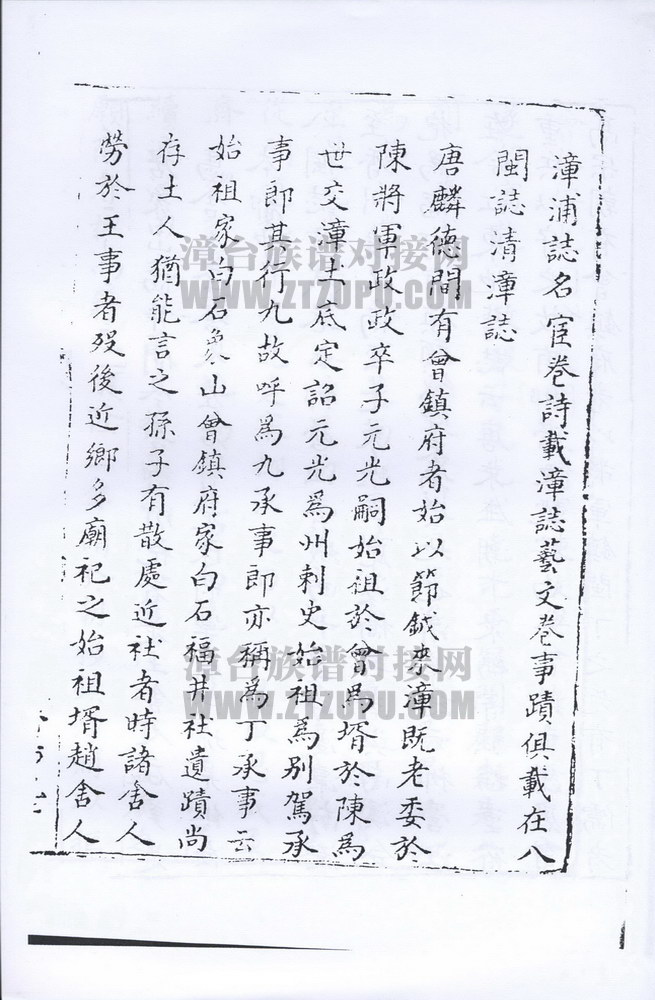 漳浦誌名宦卷詩載漳誌藝文卷事蹟俱載在八
閩誌清漳誌
唐麟德間有曾鎮府者始以節鉞來漳既老委於
陳將軍政政卒子元光嗣始祖於曾為壻於陳為
世交漳土底定詔元光為州刺史始祖為別駕承
事郎其行九故呼為九承事郎亦稱為丁承事云
始祖家白石象山曾鎮府家白石福井社遺蹟尚
存土人猶能言之孫子有散處近社者時諸舍人
勞於王事者歿後近鄉多廟祀之始祖壻趙舍人
漳台族谱对接网
WWW.ZTZUPU.COM
漳台族谱对接网
WWW.ZTZUPU.COM